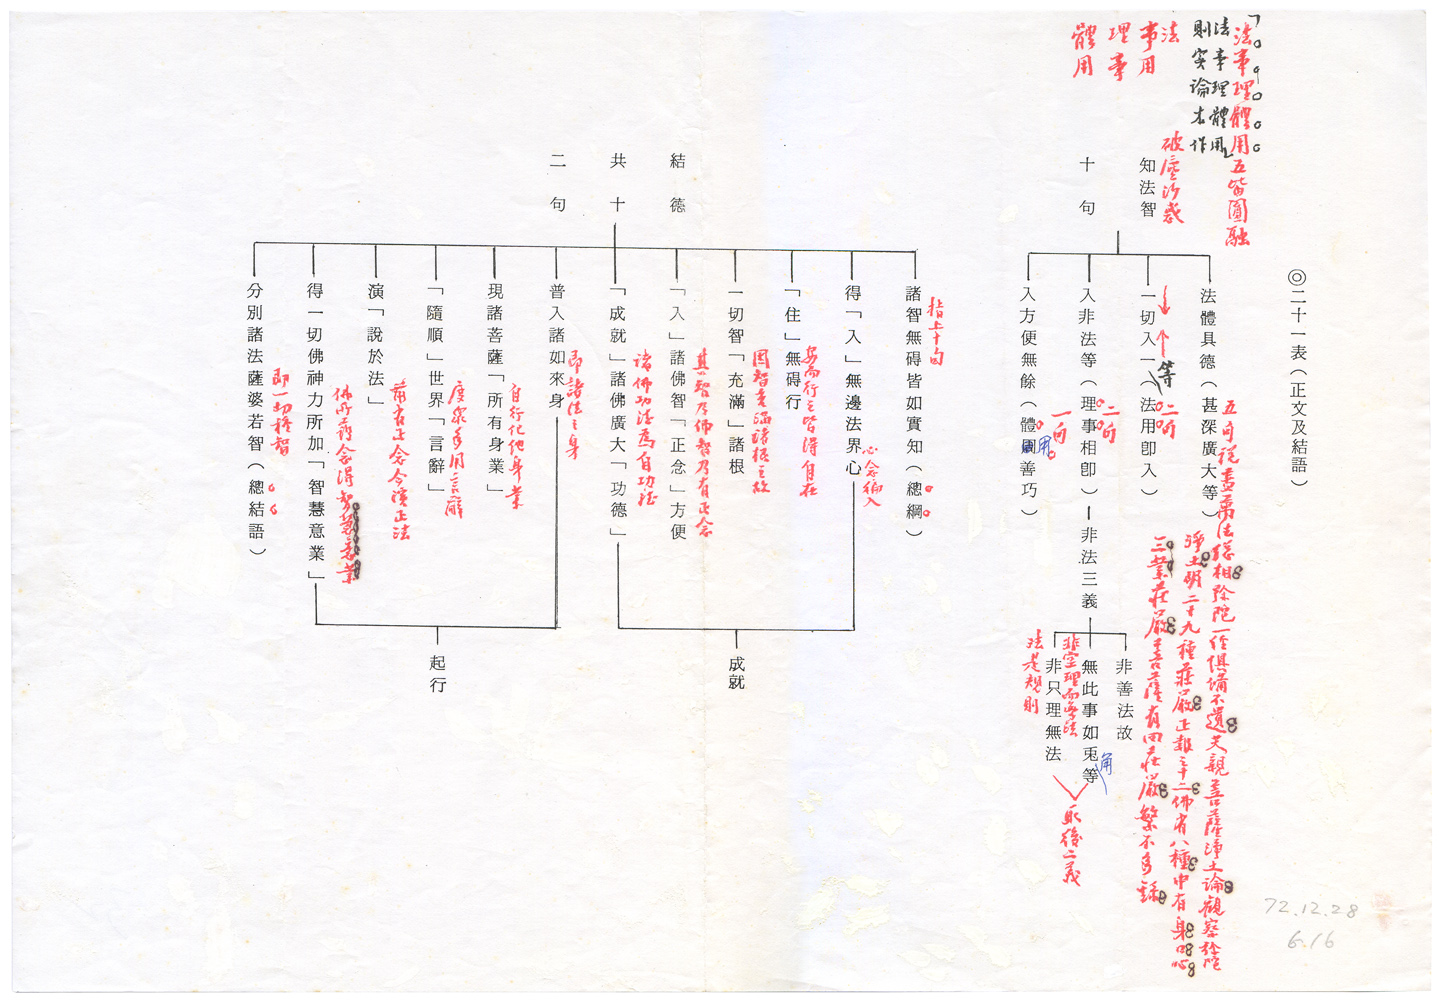 ◎二十一表(正文及結語)
法事理體用五皆圓融
法事理體用
則實論古作
法
事用
理事
體用
破塵沙惑
知法智
十句
法體具德(甚深廣大等)
一切入(法用卽入)
等
二句
入非法等(理事相卽)—非法三義
二句
入方便無餘(體圓善巧)
用
一句
非善法故
無此事如兎等
角
非只理無法
非空理而無法
法是規則
取後二義
五句說盡萬法總相彌陀一經俱備不遺天親菩薩淨土論觀察彌陀
淨土明二十九種莊嚴正報三十二佛有八種中有身口心
三業莊嚴菩薩有四莊嚴繁不多錄
結德
共十
二句
諸智無碍皆如實知(總綱)
指上十句
得「入」無邊法界心
心念徧入
「住」無碍行
安而行之皆得自在
一切智「充滿」諸根
因智充滿諸根之故
「入」諸佛智「正念」方便
其智乃佛智乃有正念
「成就」諸佛廣大「功德」
諸佛功德為自功德
普入諸如來身
即諸法之身
現諸菩薩「所有身業」
自行化他身業
「隨順」世界「言辭」
度眾多用言辭
演「說於法」
前有正念今演正法
得一切佛神力所加「智慧意業」
佛所護念得智慧意業
分別諸法薩婆若智(總結語)
即一切種智
成就
起行
72.12.28
6.16